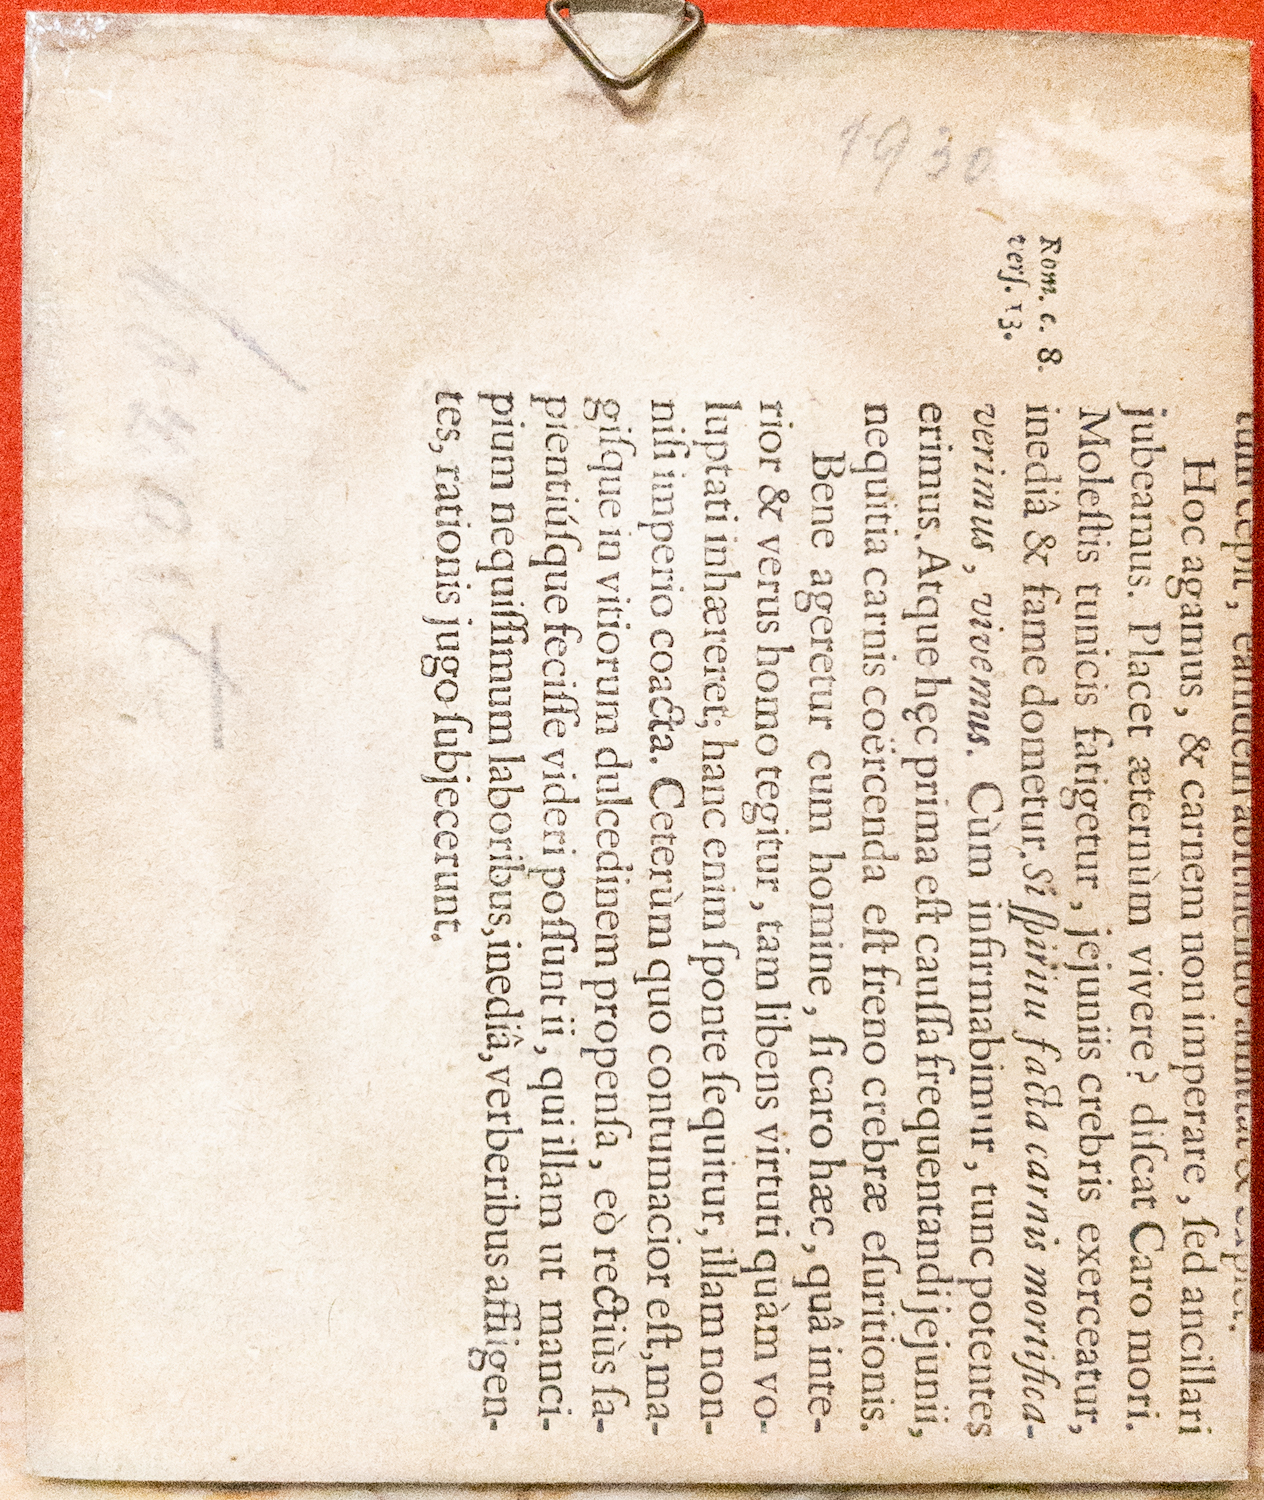 1930
Rom. c. 8.
verſ. 13.
Hoc agamus, & carnem non imperare, ſed ancillari
jubeamus. Placet æternùm vivere? diſcat Caro mori.
Moleſtis tunicis fatigetur, jejuniis crebris exerceatur,
inediâ & fame dometur. Si ſpiritu facta carnis mortifica-
verimus, vivemus. Cùm infirmabimur, tunc potentes
erimus. Atque hęc prima eſt cauſſa frequentandi jejunii,
nequitia carnis coërcenda eſt freno crebræ eſuritionis.
Bene ageretur cum homine, ſi caro hæc, quâ inte-
rior & verus homo tegitur, tam libens virtuti quàm vo-
luptati inhæreret; hanc enim ſponte ſequitur, illam non-
niſi imperio coacta. Ceterùm quo contumacior eſt, ma-
giſque in vitiorum dulcedinem propenſa, eò rectiùs ſa-
pientiúſque feciſſe videri poſſunt ii, qui illam ut manci-
pium nequiſſimum laboribus, inediâ, verberibus affligen-
tes, rationis jugo ſubjecerunt.